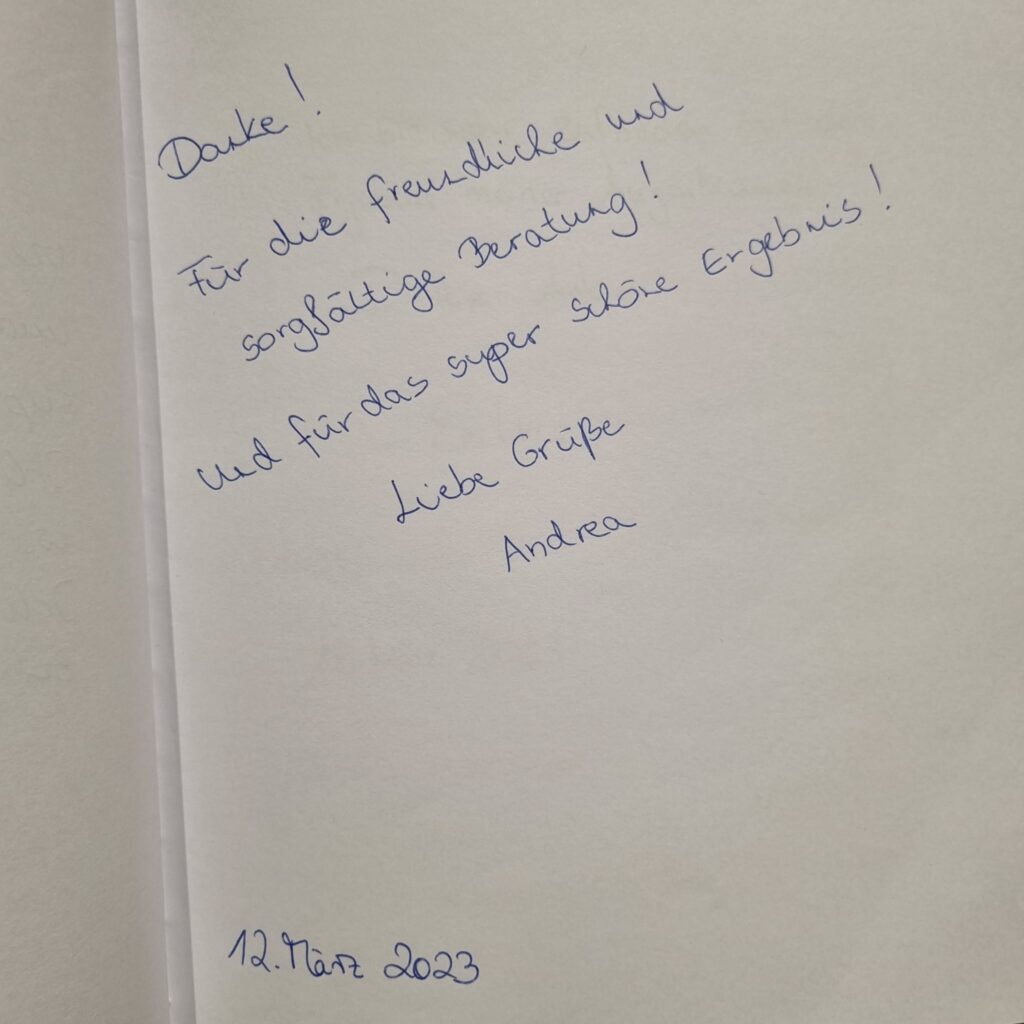 Danke!
Für die freundliche und
sorgfältige Beratung!
und für das super schöne Ergebnis!
Liebe Grüße
Andrea
12. März 2023